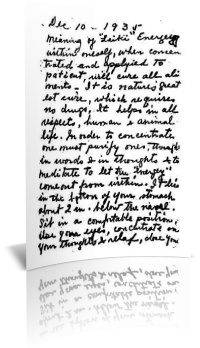 Dec 10 - 1935
Meaning of "Leiki" Energy
within oneself, when concen
trated and applyied to
patient, will cure all ail
ments. It is natures great
est cure, which requires
no drugs. It helps in all
respects, human & animal
life. In order to concentrate
one must purify ones thoughts
in words & in thoughts & to
meditate to let the "energy"
come out from within. It lies
in the bottom of your stomach
about 2 in. below the navel.
Sit in a comfortable position,
close your eyes, concentrate on
your thoughts & relax, close your